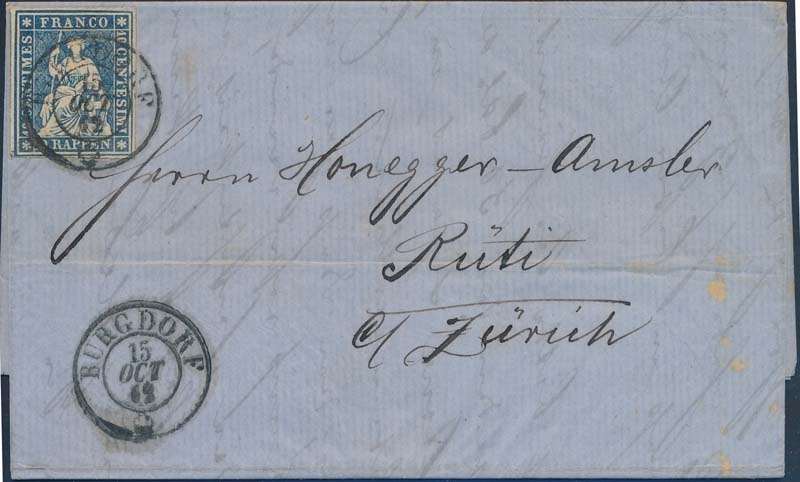 FRANCO
10 CENTIMES
10 CENTESIMI
10 RAPPEN
BURGDORF
15
OCT
62
Herrn Honegger-Amsler
Rüti
c/ Zürich
BURGDORF
15
OCT
62